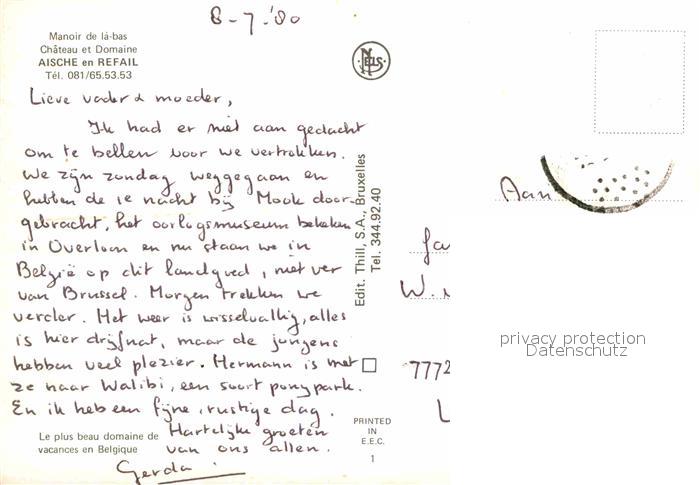 8-7-'80
Manoir de là-bas
Château et Domaine
AISCHE en REFAIL
Tél. 081/65.53.53
NELS
Lieve vader & moeder,
Ik had er niet aan gedacht
om te bellen voor we vertrokken.
We zijn zondag weggegaan en
hebben de 1e nacht bij Mook door-
gebracht, het oorlogsmuseum bekeken
in Overloon en nu staan we in
België op dit landgoed, niet ver
van Brussel. Morgen trekken we
verder. Het weer is wisselvallig, alles
is hier drijfnat, maar de jongens
hebben veel plezier. Hermann is met
ze naar Walibi, een soort ponypark.
En ik heb een fijne, rustige dag.
Hartelijke groeten
van ons allen.
Gerda
Le plus beau domaine de
vacances en Belgique
Edit. Thill, S.A., Bruxelles
Tel. 344.92.40
PRINTED
IN
E.E.C.
1
Aan
Fa
W.
7772
privacy protection
Datenschutz